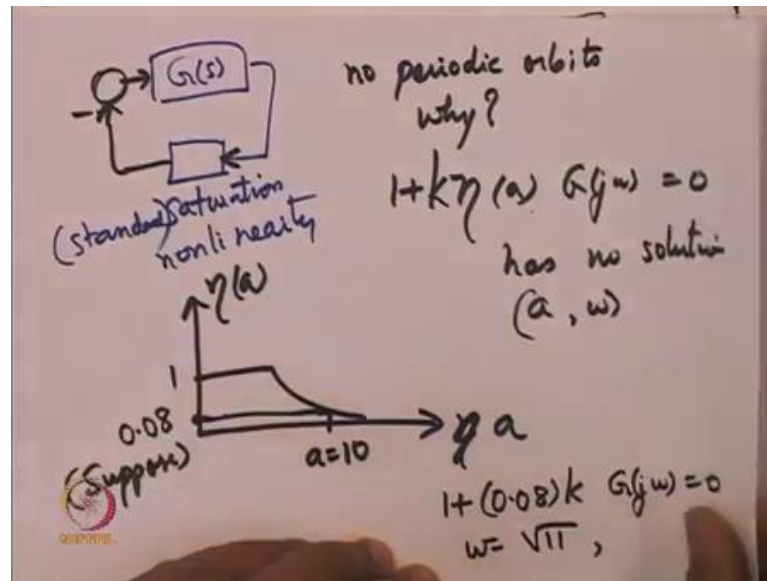 G(s)
-
(standard) saturation
nonlinearity
no periodic orbits
why?
1+kη(a) G(jω) = 0
has no solution
(a, ω)
η(a)
1
0.08
(Suppose)
a=10
a
1+(0.08)k G(jω)=0
ω= √11,